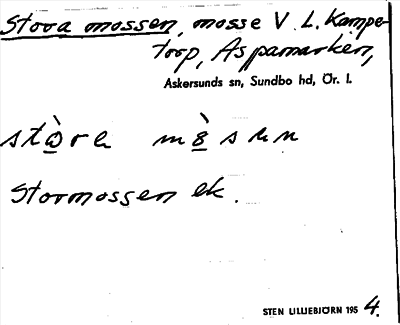 Stora mossen, mosse V. L. Kampe-
torp, Aspamarken,
Askersunds sn, Sundbo hd, Ör. l.
stò̲re mò̲sen
Stormossen ek.
STEN LILLIEBJÖRN 195 4.